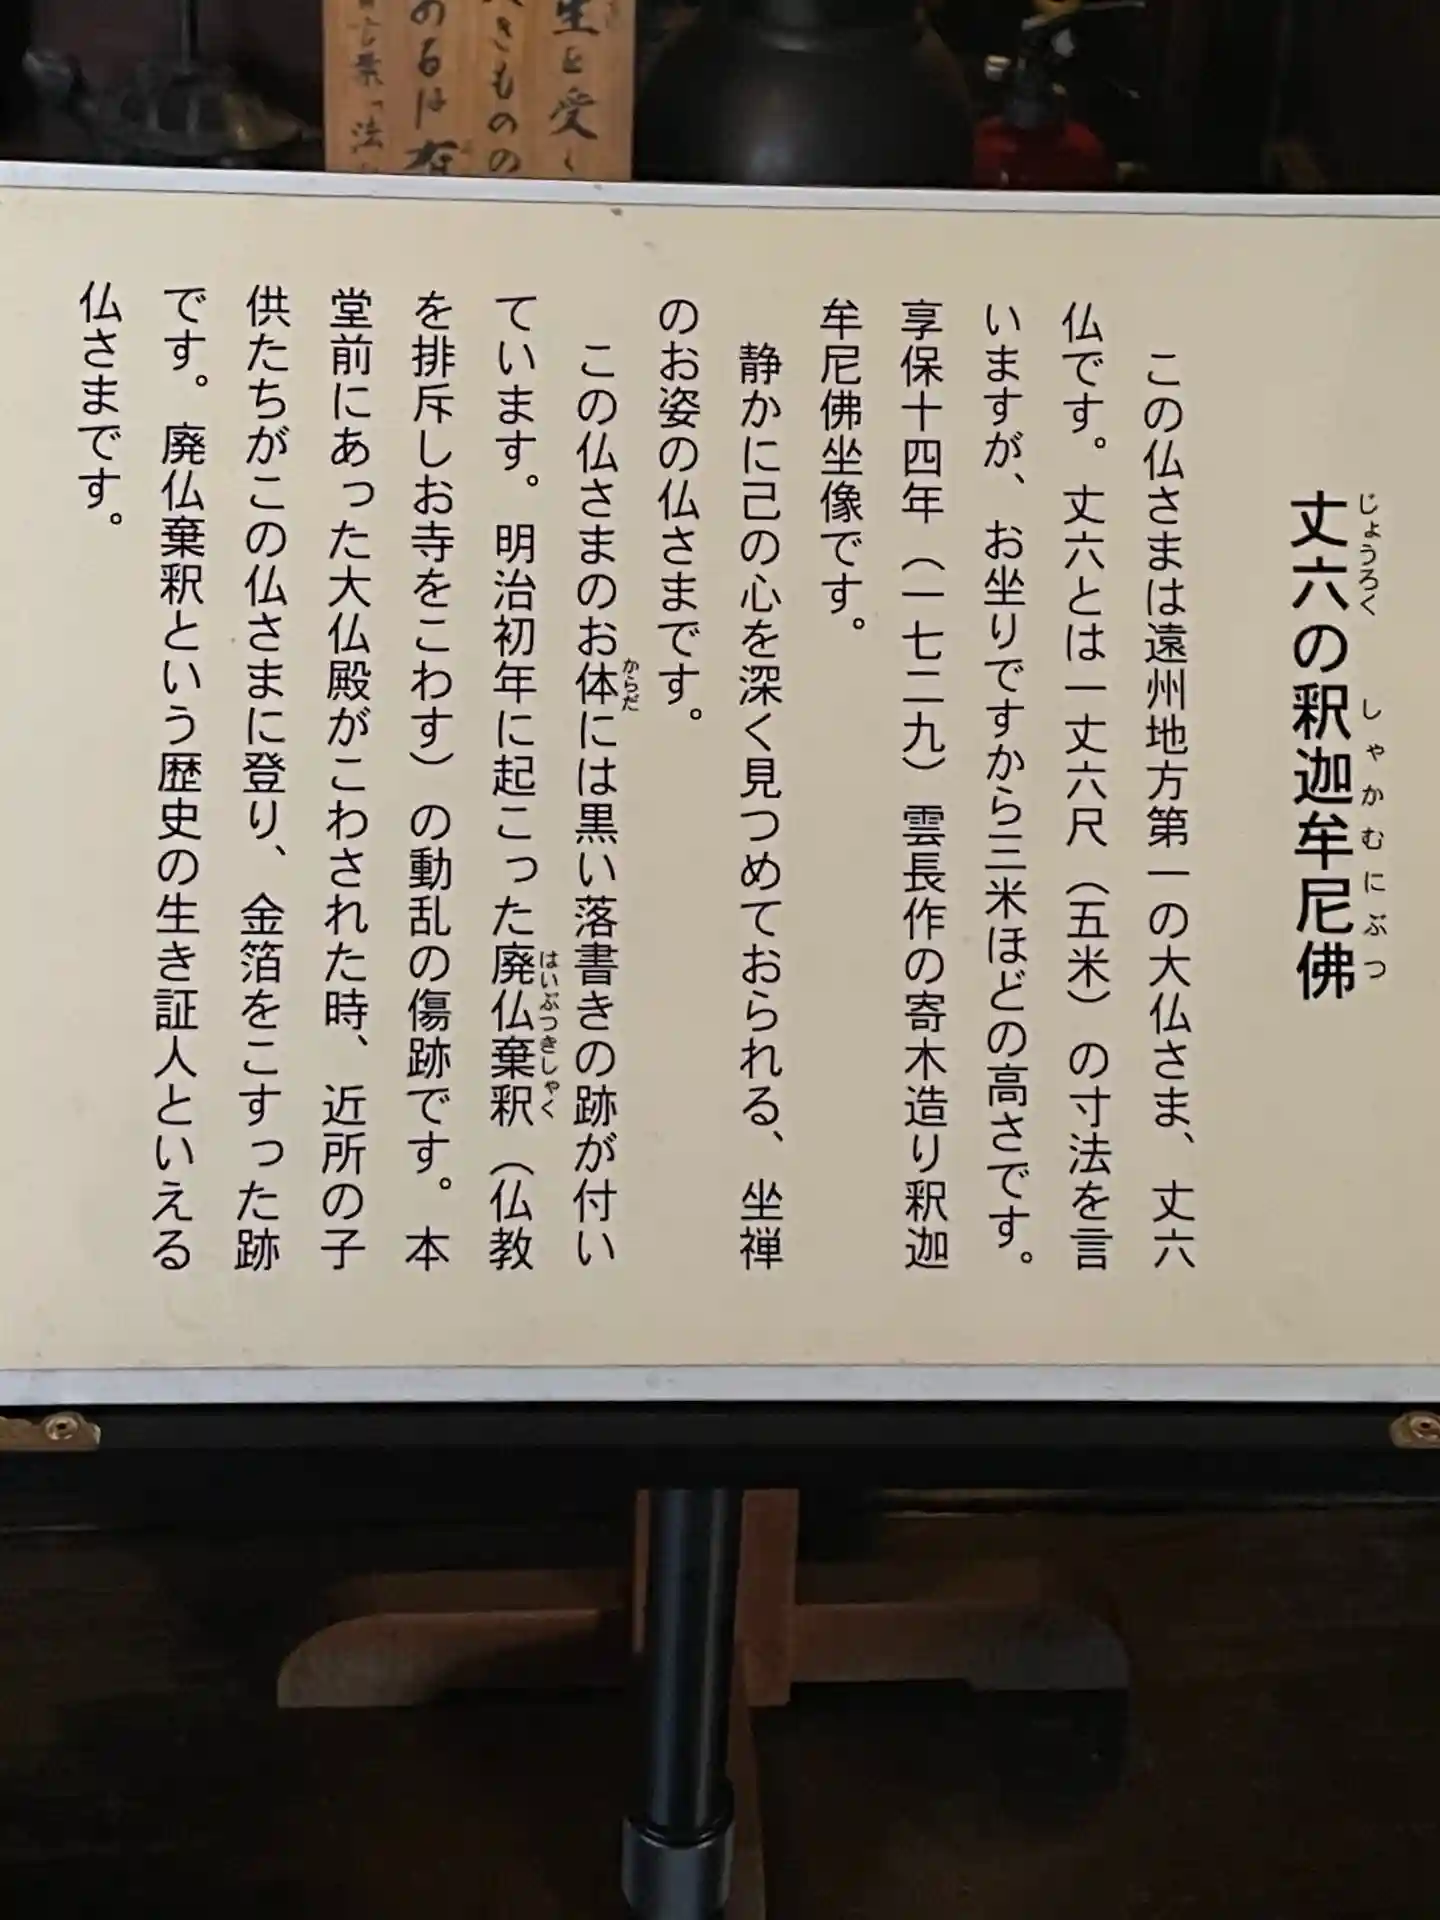 丈六の釈迦牟尼佛
じょうろく しゃかむにぶつ
この仏さまは遠州地方第一の大仏さま、丈六
仏です。丈六とは一丈六尺（五米）の寸法を言
いますが、お坐りですから三米ほどの高さです。
享保十四年（一七二九）雲長作の寄木造り釈迦
牟尼佛坐像です。
静かに己の心を深く見つめておられる、坐禅
のお姿の仏さまです。
この仏さまのお体には黒い落書きの跡が付い
からだ
ています。明治初年に起こった廃仏棄釈（仏教
はいぶつきしゃく
を排斥しお寺をこわす）の動乱の傷跡です。本
堂前にあった大仏殿がこわされた時、近所の子
供たちがこの仏さまに登り、金箔をこすった跡
です。廃仏棄釈という歴史の生き証人といえる
仏さまです。
生を受く
きものの
のるは
言葉 法